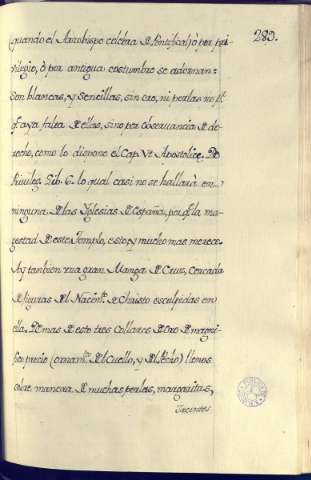 283.
(quando el Arzobispo celebra de Pontifical) ò por pri-
vilegio, ò por antigua costumbre se adornan:
son blancas, y sencillas, sin oro, ni perlas no pr.
q.e aya falta de ellas, sino por observancia de de-
recho, como lo dispone el Cap. Vt Apostolice, de
Privileg. Lib. 6. lo qual casi no se hallarà en
ninguna de las Yglesias de España, porq.e la ma-
gestad de este Templo, esto, y mucho mas merece.
Ay tambien una gran Manga de Cruz, cercada
de figuras del Nacim.to de Christo esculpidas en
ella. Demas de esto tres Collares de oro de magni-
fico precio (ornam.to del Cuello, y del Pecho) llenos
sobre manera de muchas perlas, margaritas,
Jacintos